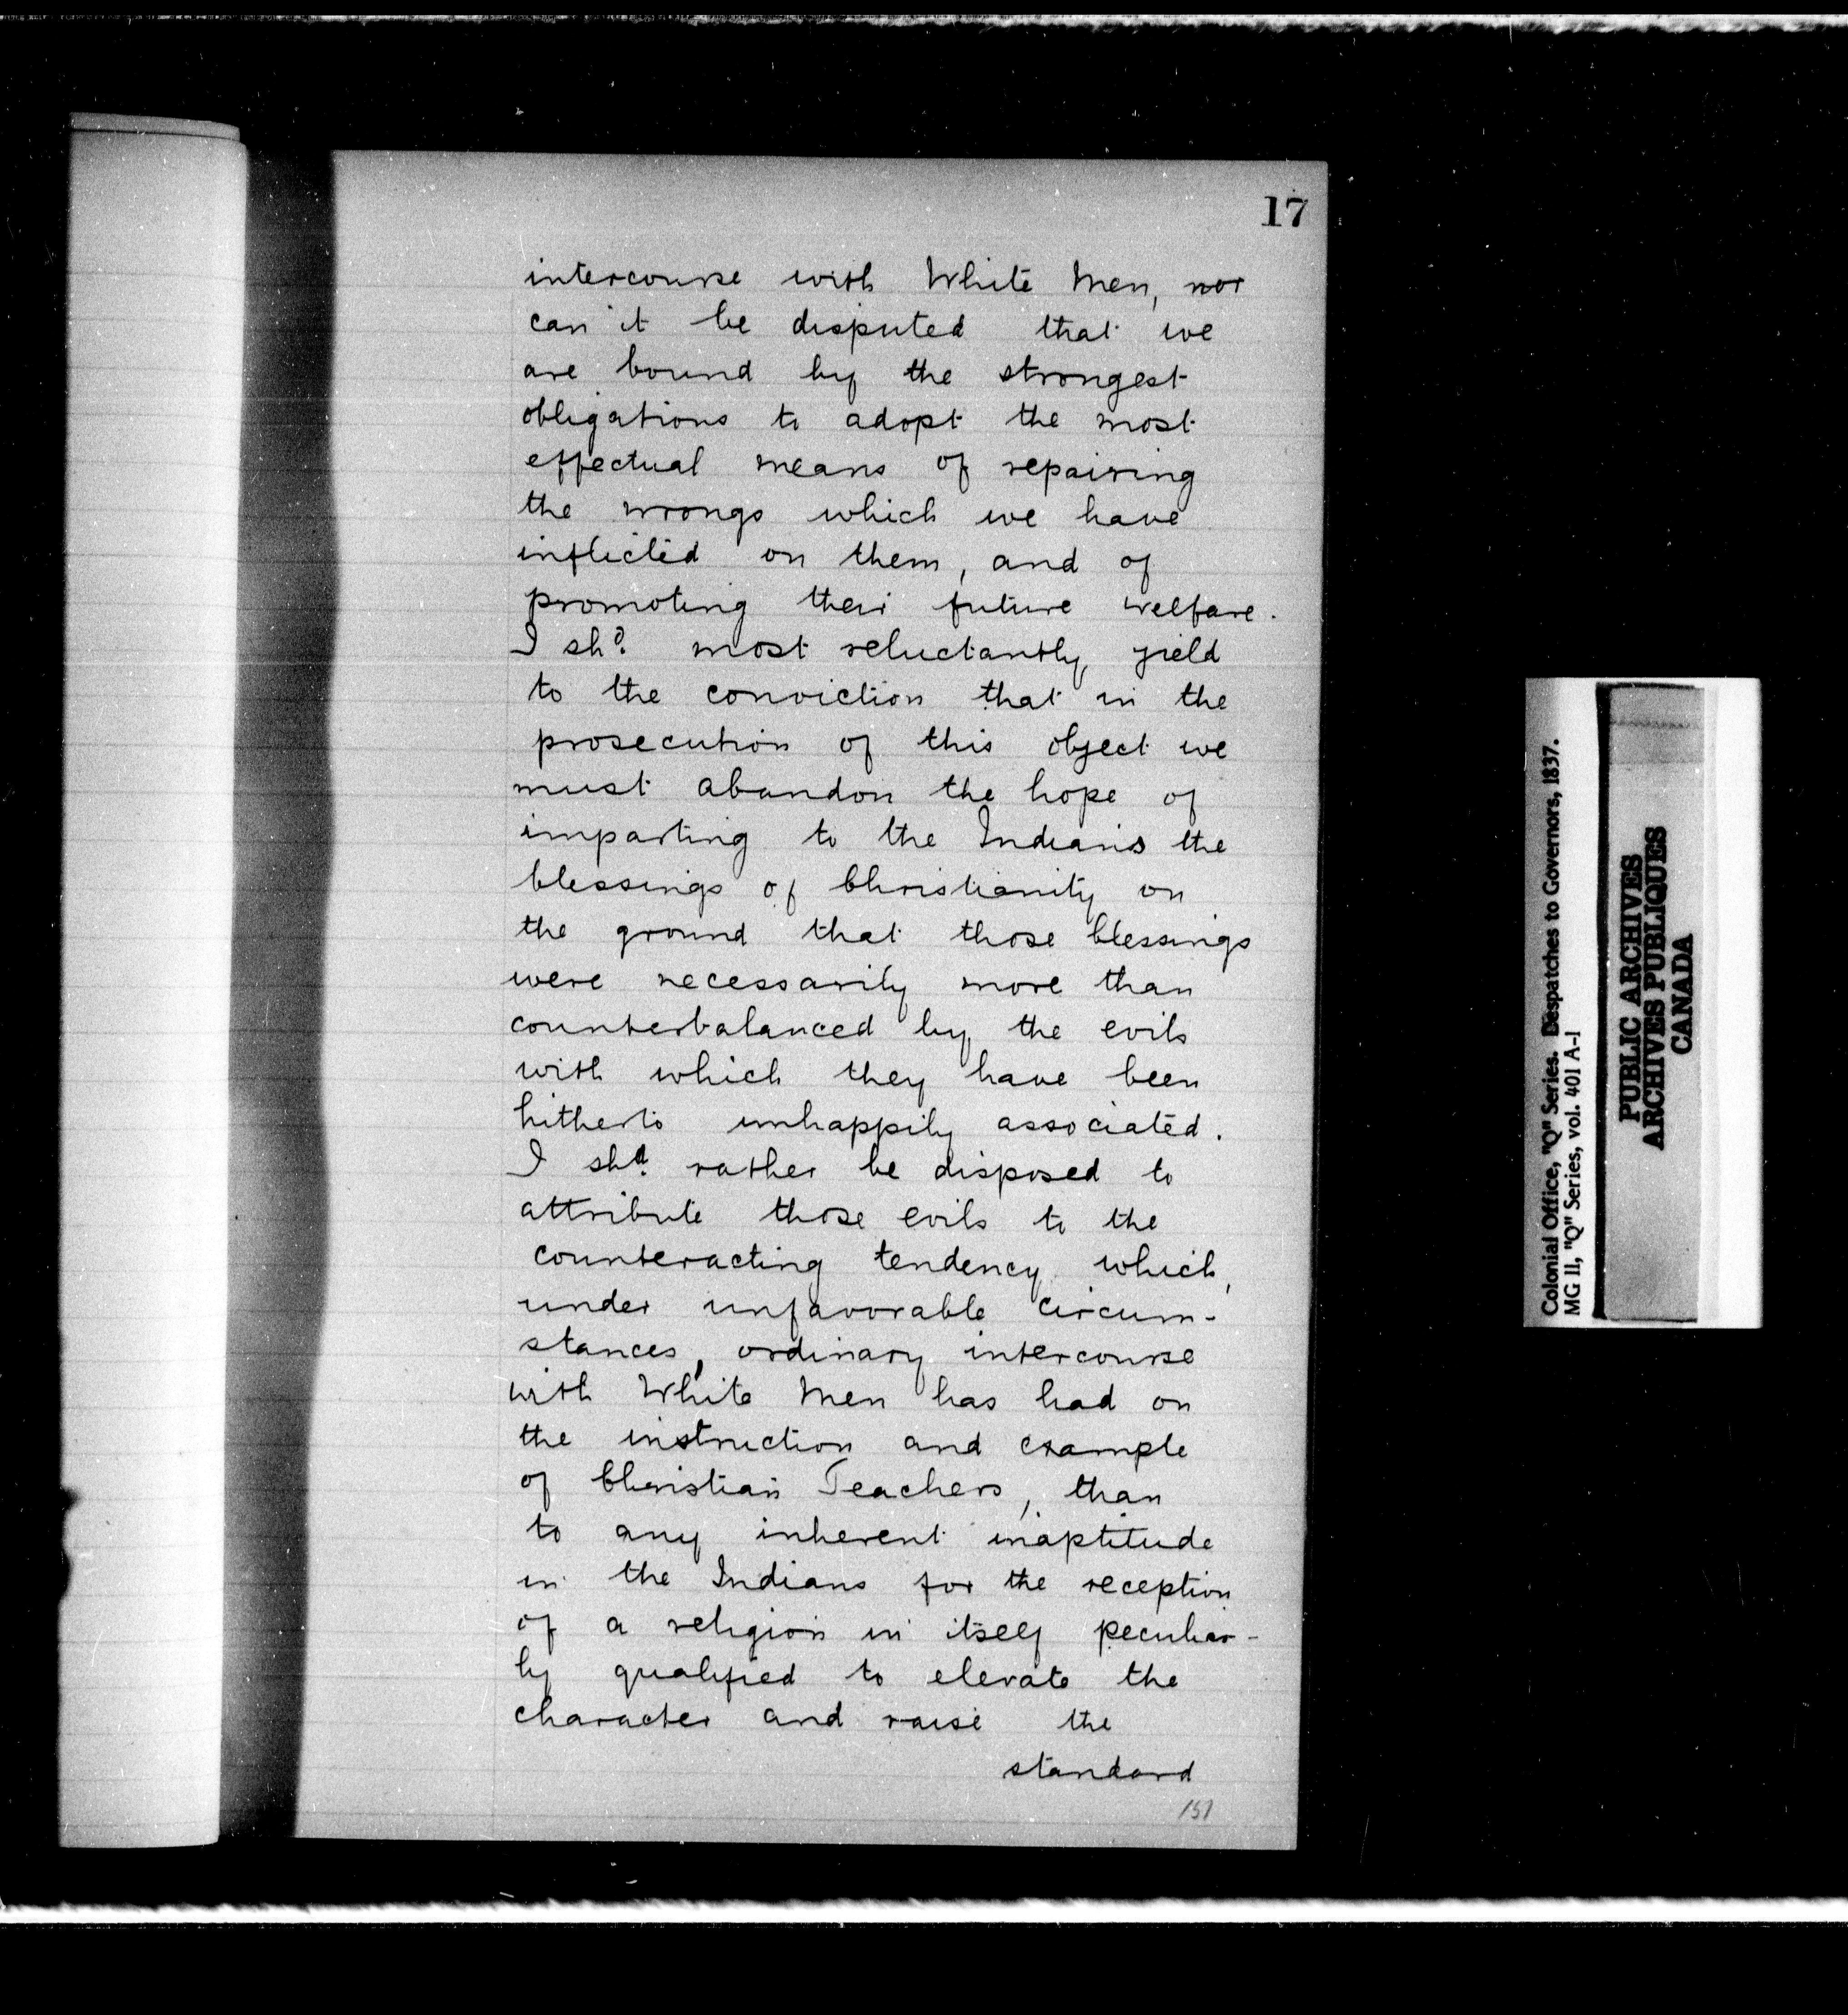 17
intercourse with White Men, nor
can it be disputed that we
are bound by the strongest
obligations to adopt the most
effectual means of repairing
the wrongs which we have
inflicted on them, and of
promoting their future welfare.
I shd. most reluctantly yield
to the conviction that in the
prosecution of this object we
must abandon the hope of
imparting to the Indians the
blessings of Christianity on
the ground that those blessings
were necessarily more than
counterbalanced by the evils
with which they have been
hitherto unhappily associated.
I shd. rather be disposed to
attribute those evils to the
counteracting tendency which,
under unfavorable circum-
stances, ordinary intercourse
with White Men has had on
the instruction and example
of Christian Teachers, than
to any inherent inaptitude
in the Indians for the reception
of a religion in itself peculiar-
ly qualified to elevate the
character and raise the
standard
151
Colonial Office, "Q" Series. Despatches to Governors, 1837.
MG 11, "Q" Series, vol. 401 A-1
PUBLIC ARCHIVES
ARCHIVES PUBLIQUES
CANADA